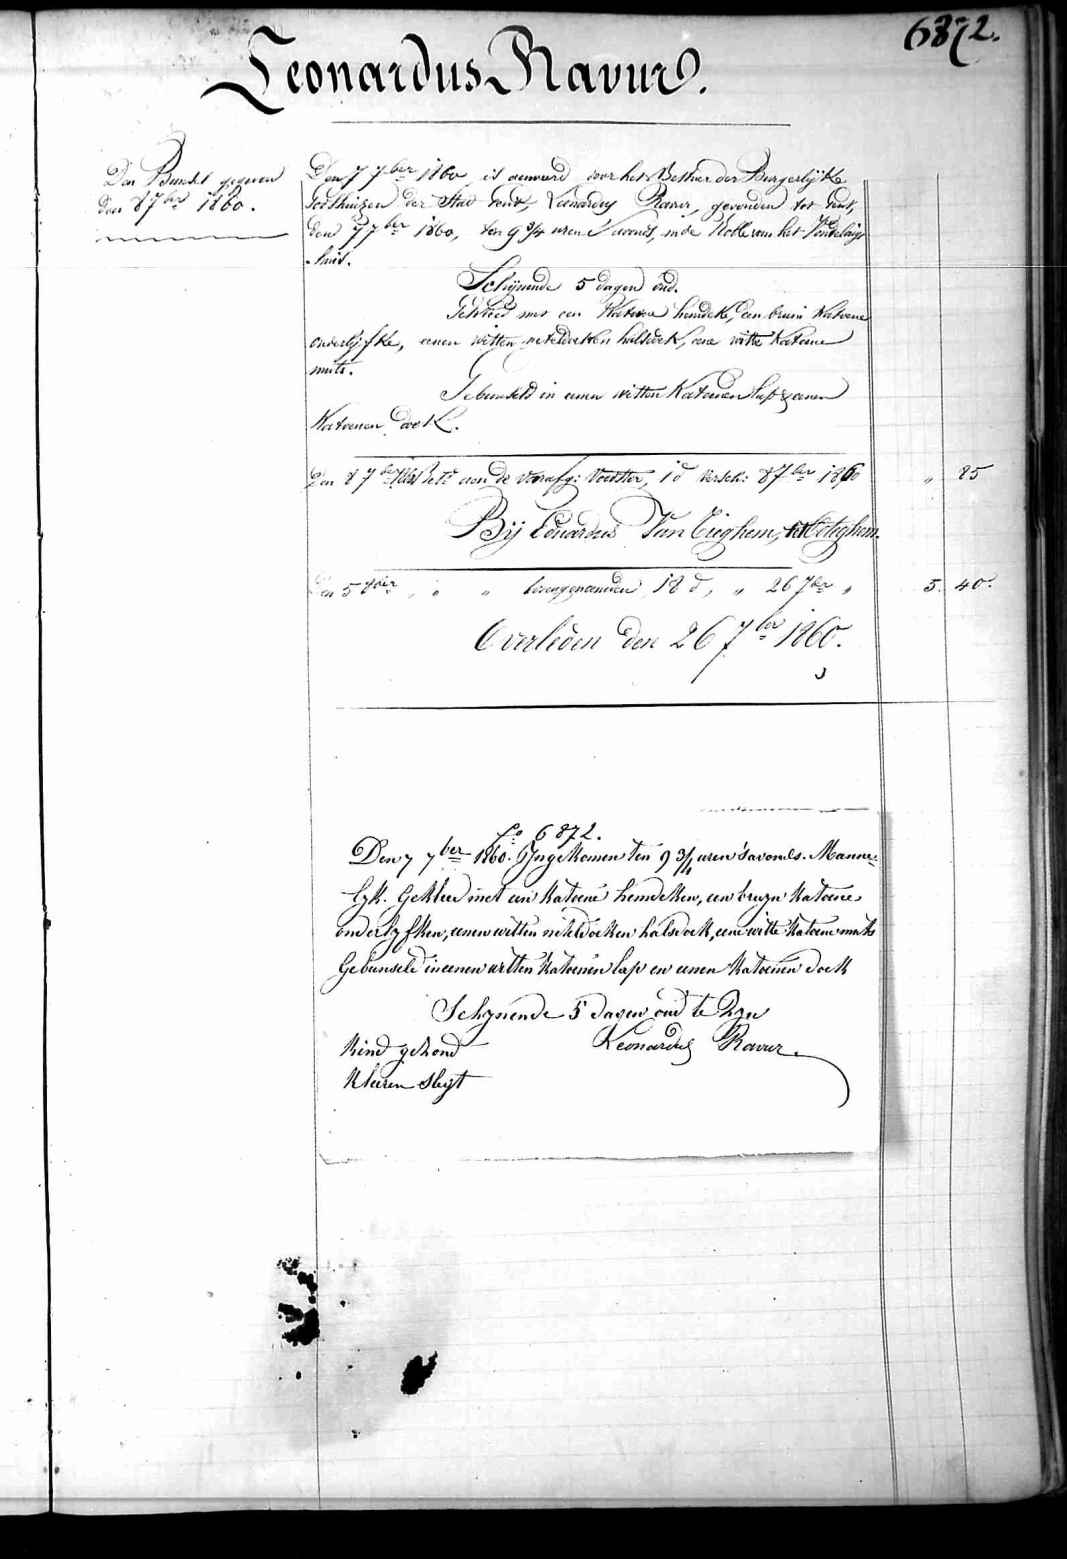 6872.
Leonardus Ravur.
Den Bundel gegeven
den 8 7ber 1860.
Den 7 7ber 1860, is aenveerd door het Bestuer der Burgerlijke
Godshuizen der Stad Gent, Leonardus Ravur, gevonden tot Gent,
den 7 7ber 1860, ten 9 3/4 uren 's avonds, in de Rolle van het Vondelings
huis.
Schijnende 5 dagen oud.
Gekleed met een Katoene hemdeke, een bruin Katoene
onderlijfke, eenen witten neteldoeken halsdoek, eene witte Katoene
muts.
Gebundeld in eenen witten Katoenen lap & eenen
Katoenen doek.
Den 8 7ber aen de voorafg: Voedster, 1 d versch: 8 7ber 1860 " 25
Bij Eduardus Van Tieghem, tot Oteghem.
Den 5 8ber " " bovengenoemden 18 d, " 26 7ber " 5. 40.
Overleden den 26 7ber 1860.
fo 6872.
Den 7 7ber 1860. Yngekomen ten 9 3/4 uren 's avonds. Manne-
lyk. Gekleed met een Katoene hemdeken, een bruyn Katoene
onderlyfken, eenen witten neteldoeken halsdoek, eene witte Katoene muts
Gebunseld in eenen witten Katoenen lap en eenen Katoenen doek
Schynende 5 dagen oud te Zyn
Kind gezond Leonardus Ravur.
Kleeren Slegt